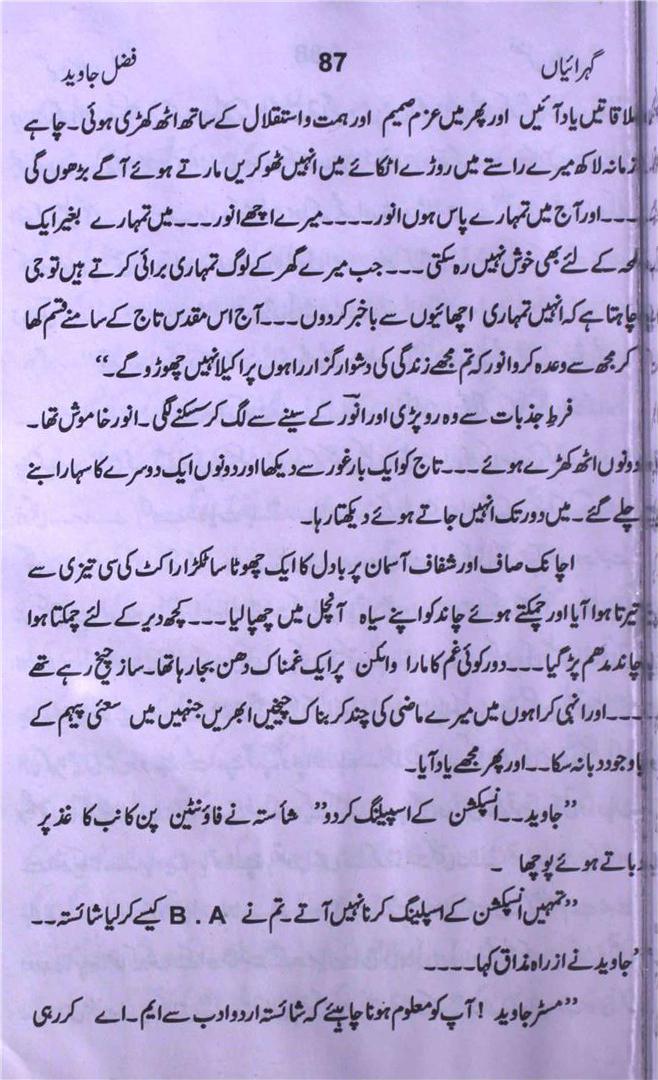 گہرائیاں 87 فضل جاوید
ملاقاتیں یاد آئیں اور پھر میں عزم صمیم اور ہمت و استقلال کے ساتھ اٹھ کھڑی ہوئی۔ چاہے
زمانہ لاکھ میرے راستے میں روڑے اٹکائے میں انہیں ٹھوکریں مارتے ہوئے آگے بڑھوں گی
۔۔۔۔اور آج میں تمہارے پاس ہوں انور۔۔۔۔میرے اچھے انور۔۔۔میں تمہارے بغیر ایک
لمحہ کے لئے بھی خوش نہیں رہ سکتی۔۔۔جب میرے گھر کے لوگ تمہاری برائی کرتے ہیں تو جی
چاہتا ہے کہ انہیں تمہاری اچھائیوں سے باخبر کردوں۔۔۔آج اس مقدس تاج کے سامنے قسم کھا
کر مجھ سے وعدہ کرو انور کہ تم مجھے زندگی کی دشوار گزار راہوں پر اکیلا نہیں چھوڑو گے۔‘‘
فرطِ جذبات سے وہ رو پڑی اور انور کے سینے سے لگ کر سسکنے لگی۔ انور خاموش تھا۔
دونوں اٹھ کھڑے ہوئے۔۔۔تاج کو ایک بار غور سے دیکھا اور دونوں ایک دوسرے کا سہارا بنے
چلے گئے۔ میں دور تک انہیں جاتے ہوئے دیکھتا رہا۔
اچانک صاف اور شفاف آسمان پر بادل کا ایک چھوٹا سا ٹکڑا راکٹ کی سی تیزی سے
تیرتا ہوا آیا اور چمکتے ہوئے چاند کو اپنے سیاہ آنچل میں چھپا لیا۔۔۔کچھ دیر کے لئے چمکتا ہوا
چاند مدھم پڑ گیا۔۔۔دور کوئی غم کا مارا وایلن پر ایک غمناک دھن بجا رہا تھا۔ ساز چیخ رہے تھے
۔۔۔۔اور انہی کراہوں میں میرے ماضی کی چند کربناک چیخیں ابھریں جنہیں میں سعئی پیہم کے
باوجود دبا نہ سکا۔۔اور پھر مجھے یاد آیا۔
’’جاوید۔۔انسپکشن کے اسپیلنگ کردو‘‘ شائستہ نے فاؤنٹین پن کا نب کاغذ پر
دباتے ہوئے پوچھا ۔
’’تمہیں انسپکشن کے اسپلینگ کرنا نہیں آتے۔ تم نے B.A کیسے کرلیا شائستہ۔۔
جاوید نے از راہ مذاق کہا۔۔۔۔
’’مسٹر جاوید ! آپ کو معلوم ہونا چاہیئے کہ شائستہ اردو ادب سے ایم۔اے کر رہی